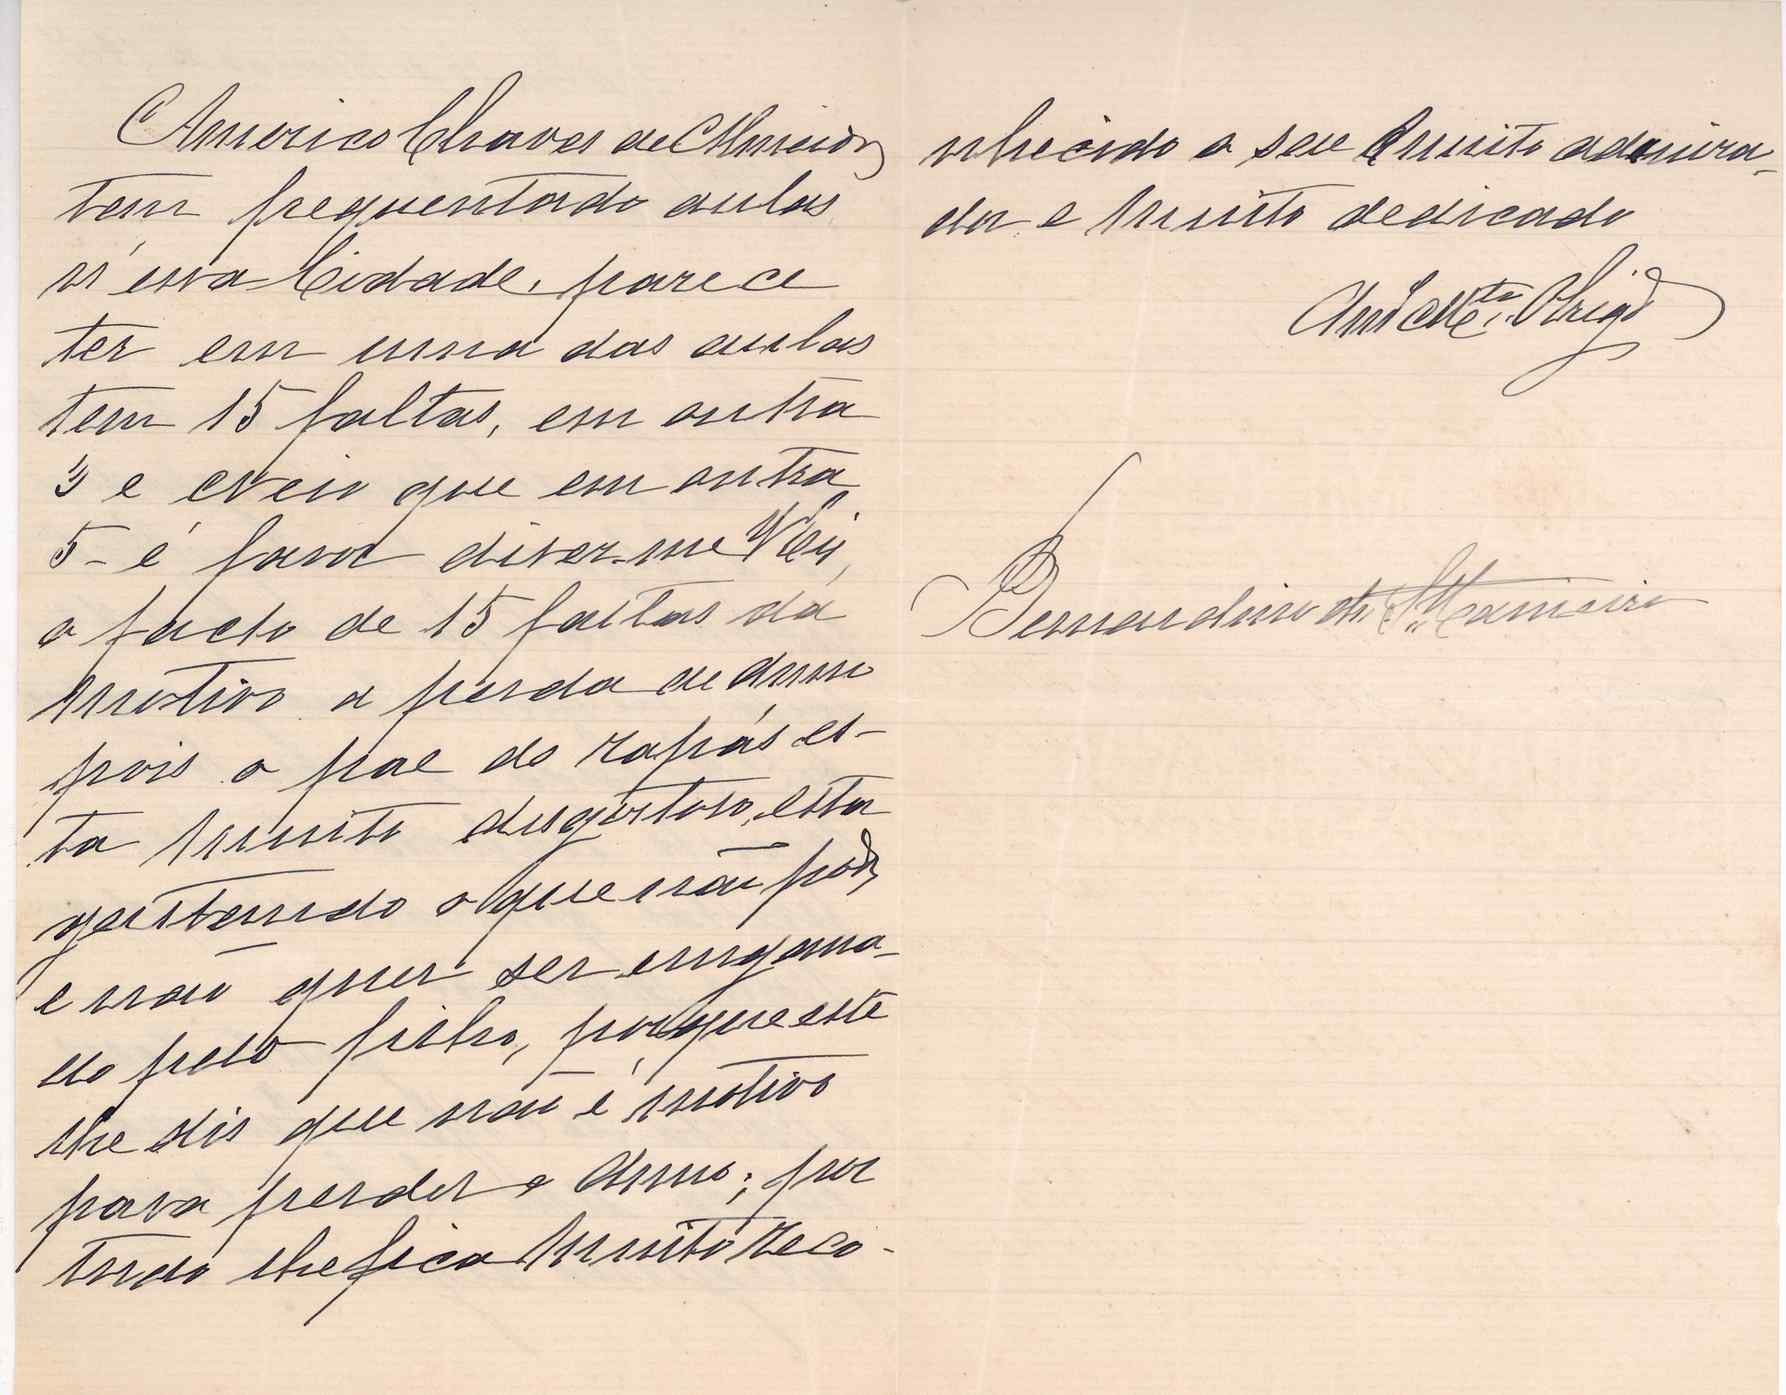 Americo Chaves de Almeida
tem frequentado aulas
n'essa Cidade, parece
ter em uma das aulas
tem 15 faltas, em outra
3 e creio que em outra
5 - é favor dizer-me
o facto de 15 faltas dá
motivo a perda de anno
pois o pae do rapás es-
ta muito desgostoso, esta
gastando o que não pode
e não quer ser engana-
do pelo filho, porque este
lhe dis que não é motivo
para perder o anno; por
tudo lhe fica muito reco-
nhecido o seu muito admira-
dor e muito dedicado
Bernardino